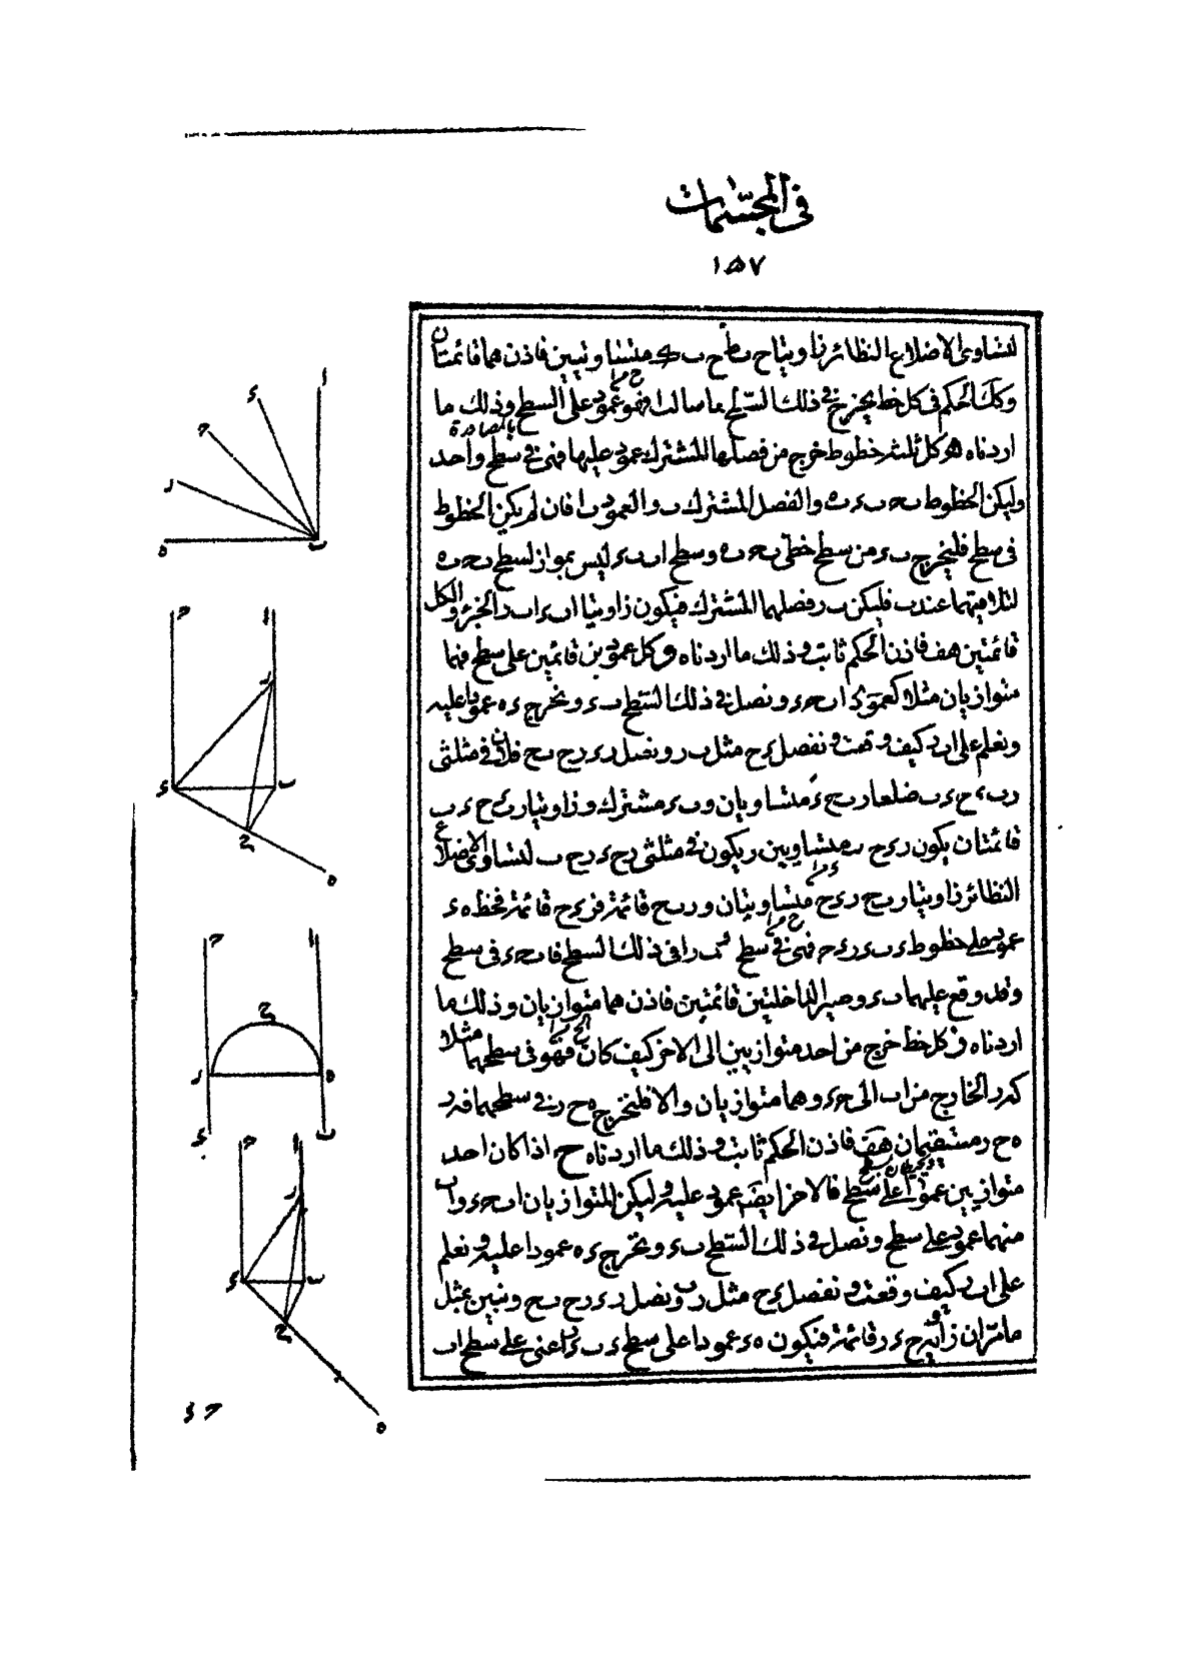 في المجسّمات
١٥٧
لتساوى الاضلاع النظائر زاويتا ح ب ط ح ب ك متساويتين فاذن هما قائمتان
وكذلك الحكم في كل خط يخرج في ذلك السطح فهو عمود على السطح وذلك ما
اردناه ه كل ثلثة خطوط خرج من فصلها المشترك عمود عليها فهى في سطح واحد
وليكن الخطوط ب ح ب ء ب ه والفصل المشترك ب والعمود ب ا فان لم يكن الخطوط
في سطح فليخرج ب ء من سطح خطى ب ح ب ه وسطح ا ب ب ء ليس بمواز لسطح ب ح ب ه
لتلاقيهما عند ب فليكن ب ر فصلهما المشترك فيكون زاويتا ا ب ء ا ب ر الجزء والكل
قائمتين هف فاذن الحكم ثابت وذلك ما اردناه و كل عمودين قائمين على سطح فهما
متوازيان مثلا كعمودى ا ب ح ء ونصل في ذلك السطح ب ء ونخرج ء ه عمودا عليه
ونعلم على ا ب ر كيف وقعت ونفصل ء ح مثل ب ر ونصل ر ء ر ح ب ح فلان في مثلثى
ر ب ء ح ء ب ضلعا ر ب ح ء متساويان و ب ء مشترك وزاويتا ر ب ء ح ء ب
قائمتان يكون ر ء ح ب متساويين ويكون في مثلثى ر ح ء ر ح ب لتساوى الاضلاع
النظائر زاويتا ر ب ح ر ء ح متساويتان و ر ب ح قائمة فر ء ح قائمة فخط ه ء
عمود على خطوط ء ب ء ر ء ح فهى في سطح ب را في ذلك السطح فا ب ح ء في سطح
وقد وقع عليهما ب ء وصير الداخلتين قائمتين فاذن هما متوازيان وذلك ما
اردناه ز كل خط خرج من احد متوازيين الى الاخر كيف كان فهو في سطحهما مثلا
كه ر الخارج من ا ب الى ح ء وهما متوازيان والا فليخرج ه ح ر في سطحهما فه ر
ه ح ر مستقيمان هف فاذن الحكم ثابت وذلك ما اردناه ح اذا كان احد
متوازيين عمودا على سطح فالاخر ايضا عمود عليه وليكن المتوازيان ا ب ح ء و ا ب
منهما عمود على سطح ونصل في ذلك السطح ب ء ونخرج ء ه عمودا عليه ونعلم
على ا ب ر كيف وقعت ونفصل ء ح مثل ر ب ونصل ر ء ر ح ب ح ونبين بمثل
ما مر ان زاوية ح ء ر قائمة فيكون ه ء عمودا على سطح ء ب ء ر اعنى على سطح ا ب
ح ء